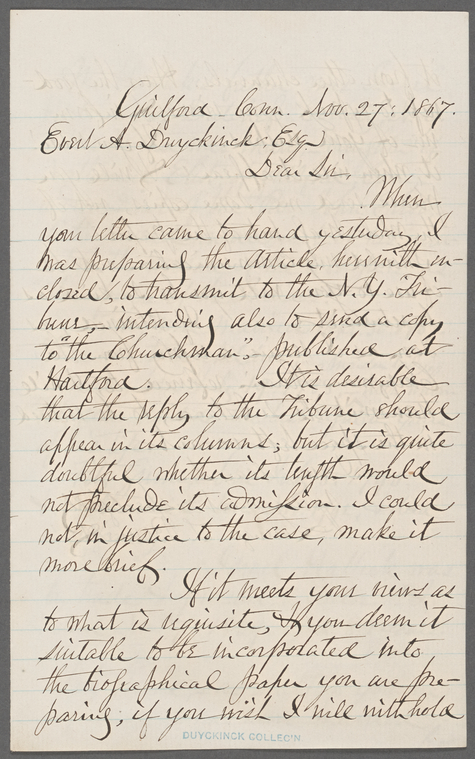 Guilford Conn. Nov. 27: 1867.
Evert A. Duyckinck: Esq
Dear Sir,
When
your letter came to hand yesterday, I
was preparing the Article, herewith in-
closed, to transmit to the N.Y. Tri-
bune,- intending also to send a copy
to "the Churchman",- published at
Hartford. It is desirable
that the reply to the Tribune should
appear in its columns; but it is quite
doubtful whether its length would
not preclude its admission. I could
not, in justice to the case, make it
more brief.
If it meets your views as
to what is requisite, & you deem it
suitable to be incorporated into
the biographical paper you are pre-
paring; if you wish I will withhold
DUYCKINCK COLLEC'N